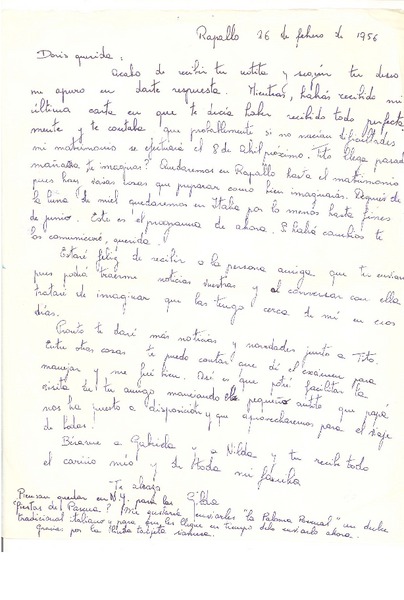 Rapallo 26 de febrero de 1956
Doris querida,
Acabo de recibir tu notita y según tu deseo
me apuro en darte respuesta. Mientras, habrás recibido mi
última carta en que te decía haber recibido todo perfecta
mente y te contaba que probablemente si no nacían dificultades
mi matrimonio se efectuará el 8 de abril próximo. Tito llega pasado
mañana te imaginas? Quedaremos en Rapallo hasta el matrimonio
pues hay varias cosas que preparar como bien imaginarás. Después de
la luna de miel quedaremos en Italia por lo menos hasta fines
de junio. Este es el programa de ahora. Si habrá cambios te
los comunicaré, querida!
Estaré feliz de recibir a la persona amiga que tu envias
pues podrá traerme noticias vuestras y al conversar con ella
trataré de imaginar que las tengo cerca de mí en esos
días.
Pronto te daré más noticias y novedades junto a Tito.
Entre otras cosas te puedo contar que dí el examen para
manejar y me fué bien. Así es que podré facilitar la
visita de tu amiga manejando el pequeño autito que papá
nos ha puesto a disposición y que aprovecharemos para el viaje
de bodas.
Bésame a Gabriela y a Nilda y tu recibe todo
el cariño mío y de toda mi familia
Te abraza
Gilda
Piensan quedar en N.Y. para las
fiestas de Pascua? Me gustaría enviarles "la Paloma Pascual" un dulce
tradicional italiano y para que les llegue en tiempo debo enviarlo ahora.
Gracias por la linda tarjeta